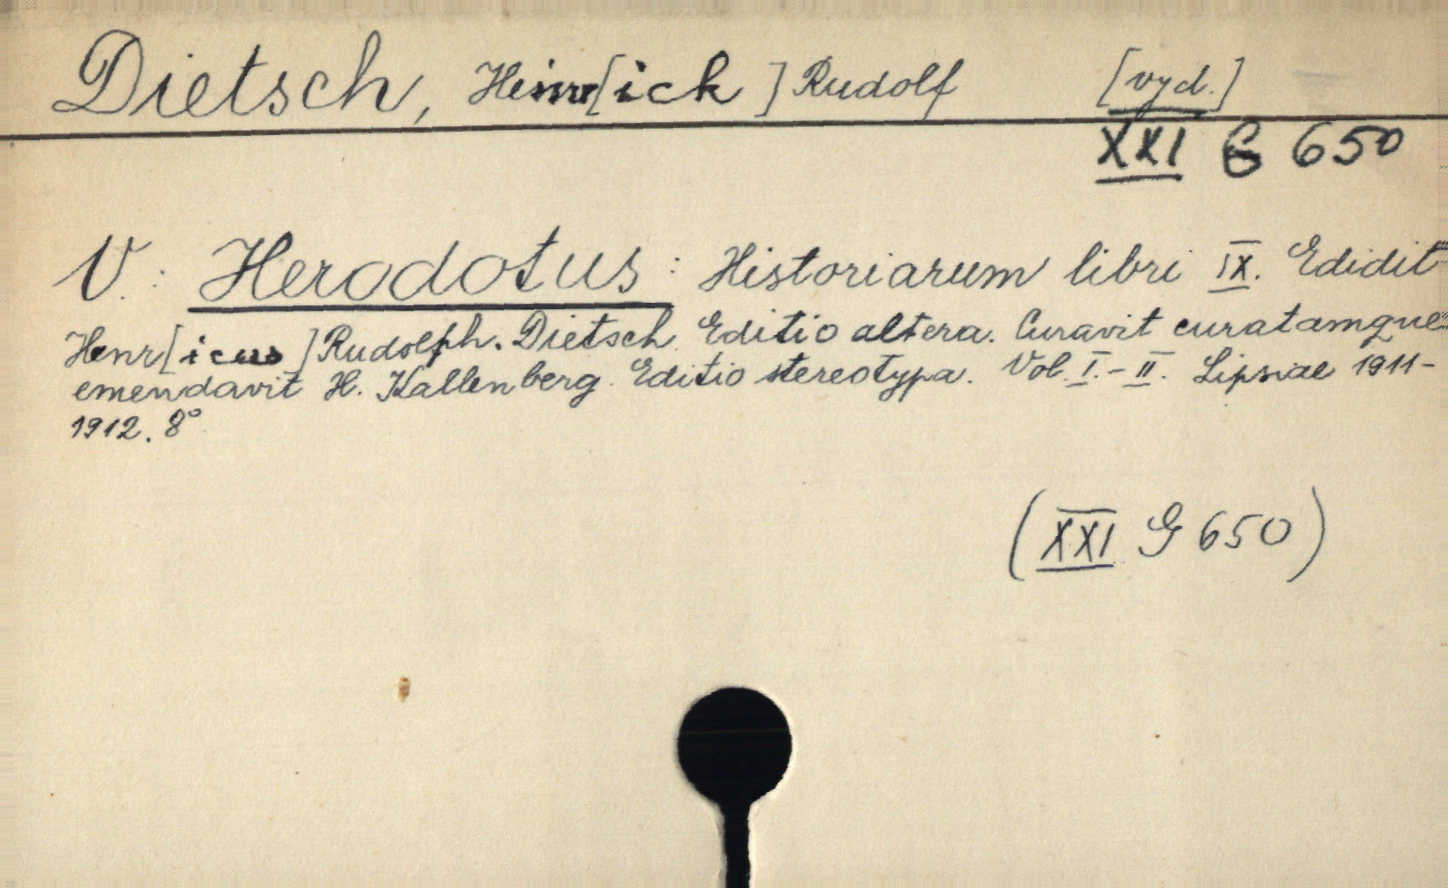 Dietsch, Heinr[ich] Rudolf [vyd.]
XXI G 650
V.: Herodotus: Historiarum libri IX. Edidit
Henr[icus] Rudolph. Dietsch. Editio altera. Curavit curatamque
emendavit H. Kallenberg. Editio stereotypa. Vol. I.-II. Lipsiae 1911-
1912. 8°
(XXI G 650)